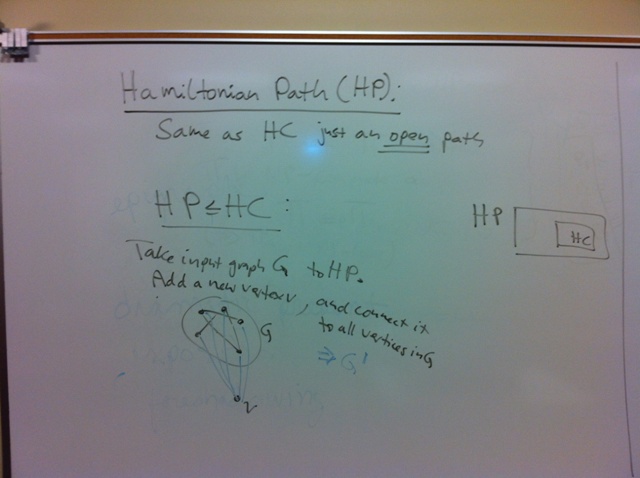 Hamiltonian Path (HP):
Same as HC just an open path
HP ≤ HC :
HP
HC
Take input graph G to HP.
Add a new vertex v, and connect it
to all vertices in G
G
⇒ G'
v